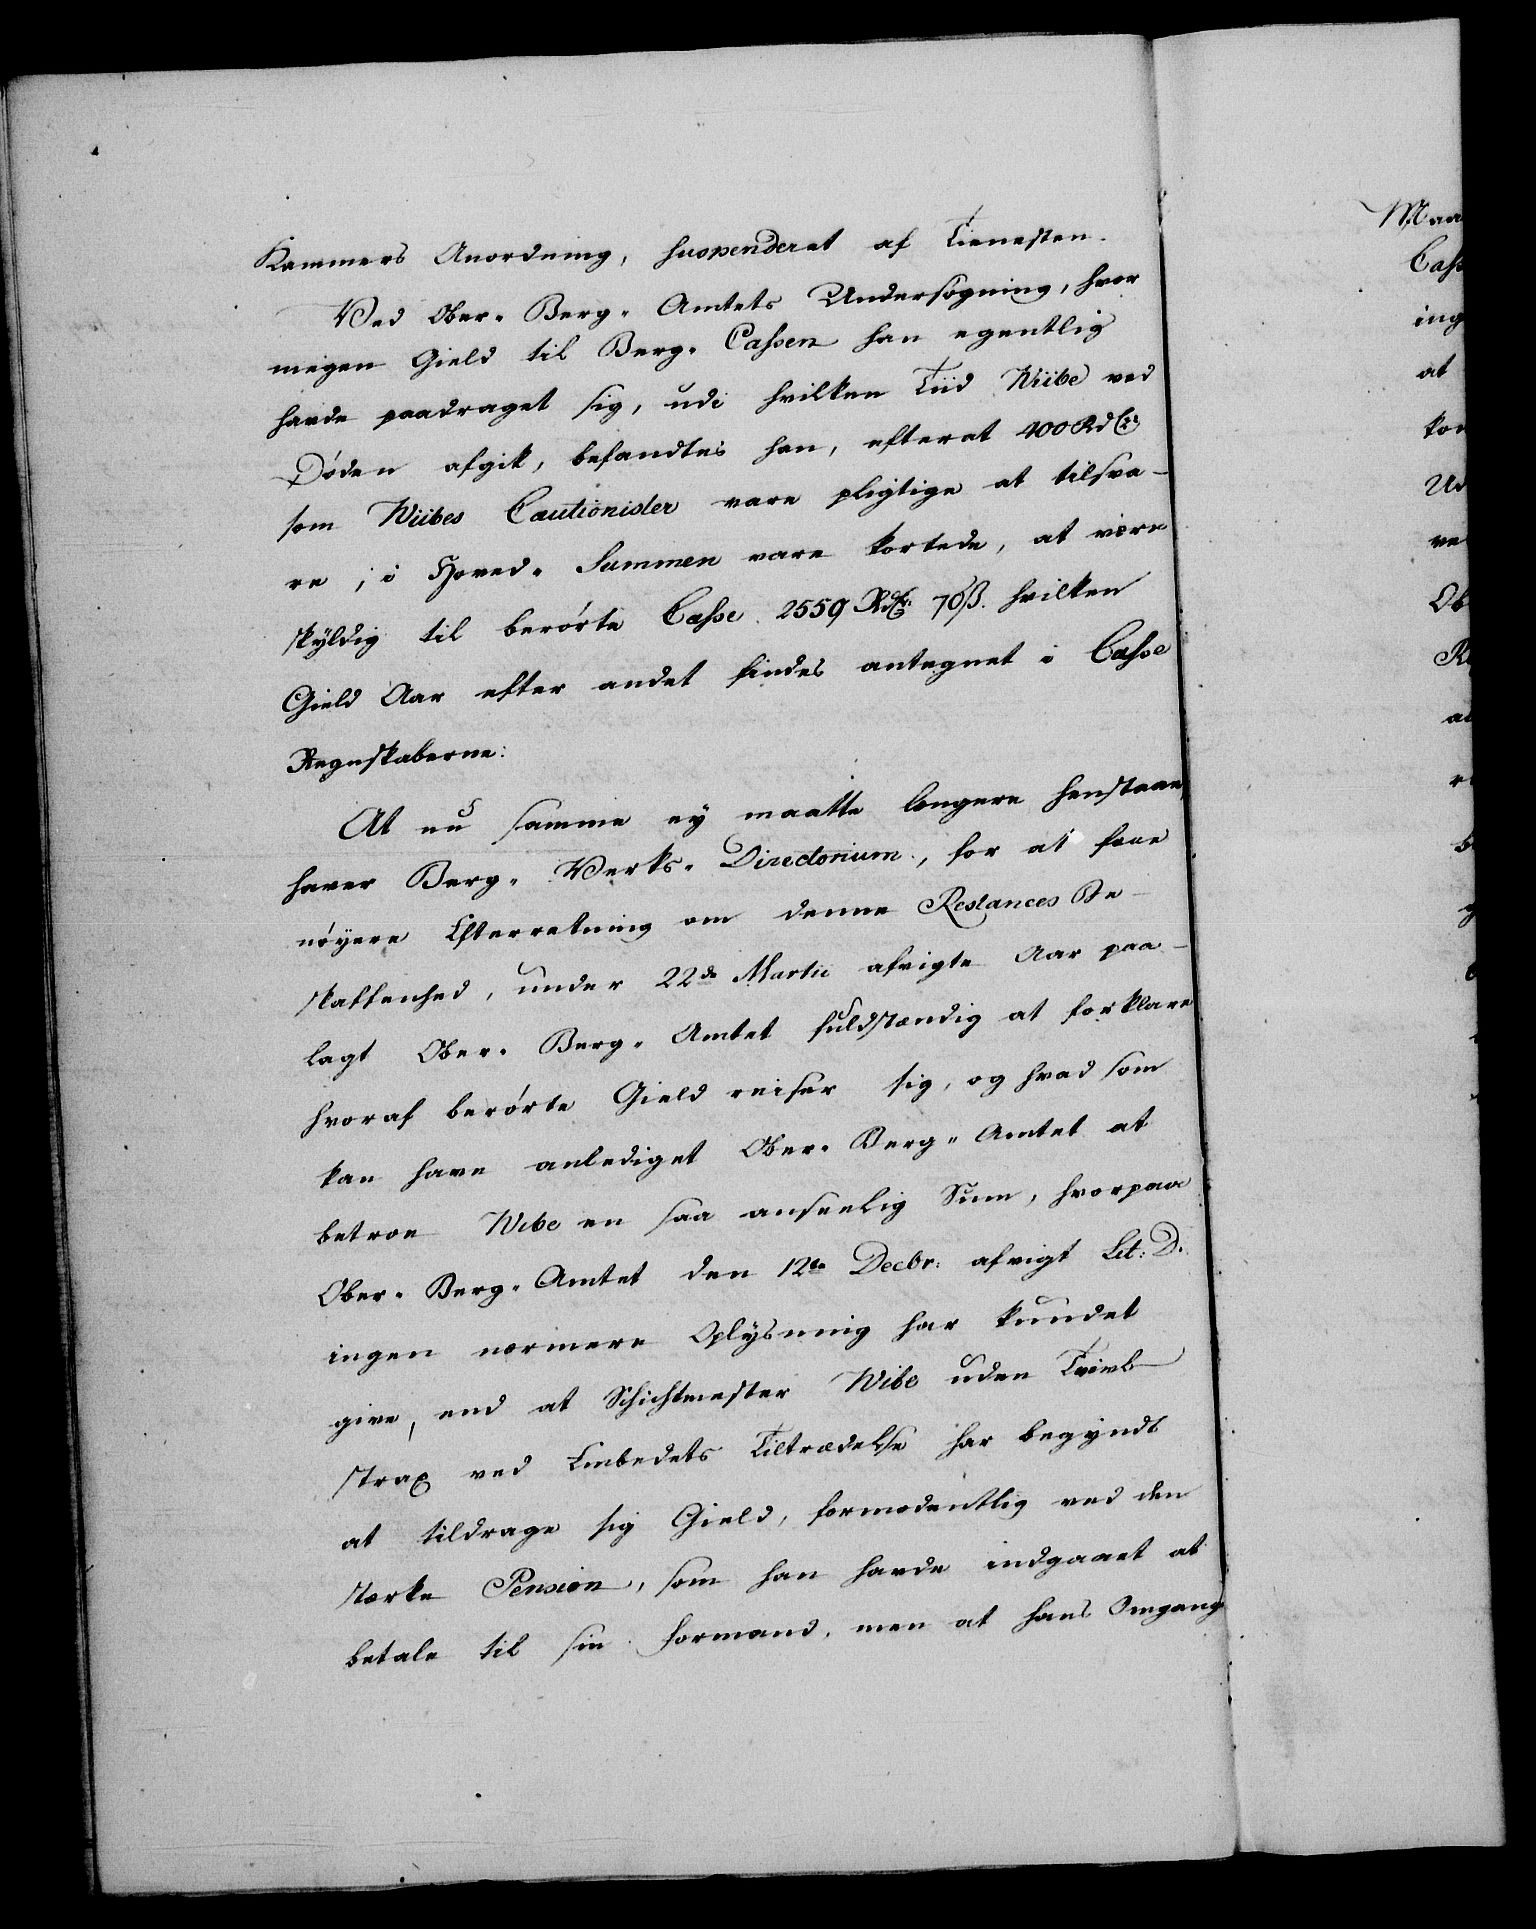 Kammers Anordning, suspenderet af Tienesten.
Ved Ober-Berg-Amtets Undersøgning, hvor
megen Gield til Berg-Cassen han egentlig
havde paadraget sig, udi hvilken Tiid Wiibe ved
Døden afgik, befandtes han, efterat 400 Rd
som Wiibes Cautionister vare pligtige at tilsva-
re, i Hoved-Summen vare kortede, at være
skyldig til berørte Casse 2559 Rd 70 ß. hvilken
Gield Aar efter andet findes antegnet i Casse
Regnskaberne:
At nu samme ey maatte længere henstaae,
haver Berg-Verks-Directorium, for at faae
nøyere Efterretning om denne Restances Be-
skaffenhed, under 22de Martii afvigte Aar paa-
lagt Ober-Berg-Amtet fuldstændig at forklare
hvoraf berørte Gield reiser sig, og hvad som
kan have anlediget Ober-Berg-Amtet at
betroe Wibe en saa anseelig Sum, hvorpaa
Ober-Berg-Amtet den 12te Decbr: afvigt Lit: D.
ingen nærmere Oplysning har kundet
give, end at Schichtmester Wibe uden Tvivl
strax ved Embedets Tiltrædelse har begyndt
at tildrage sig Gield, formodentlig ved den
stærke Pension, som han havde indgaaet at
betale til sin Formand, men at hans Omgang
Maa
Cass
ing
at
kon
ve
Ob